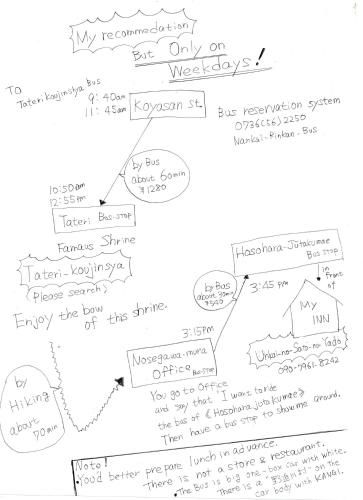 My recommedation
But Only on
Weekdays!
To
Taterikoujinsya Bus
9:40am
11:45am
Koyasan st.
Bus reservation system
0736(56)2250
Nankai-Rinkan-Bus
by Bus
about 60min
¥1280
10:50am
12:55pm
Tateri Bus-STOP
Famaus Shrine
Tateri-koujinsya
(Please search)
Enjoy the bow
of this shrine.
Hosohara-Jutakumae
Bus STOP
by Bus
about 30min
¥540
3:45 pm
in
Front
of
MY
INN
Unkai-no-Sato-no Yado
090-7961-8242
3:15pm
Nosegawa-mura
Office Bus-STOP
by
Hiking
about
70min
You go to Office
and say that "I want to ride
the bus of 《Hosohara jutakumae》
Then have a bus STOP to show me around.
Note!
You'd better prepare lunch in advance.
There is not a store & restaurant.
The Bus is big one-box car with white.
There is a on the
car body with KANJI.